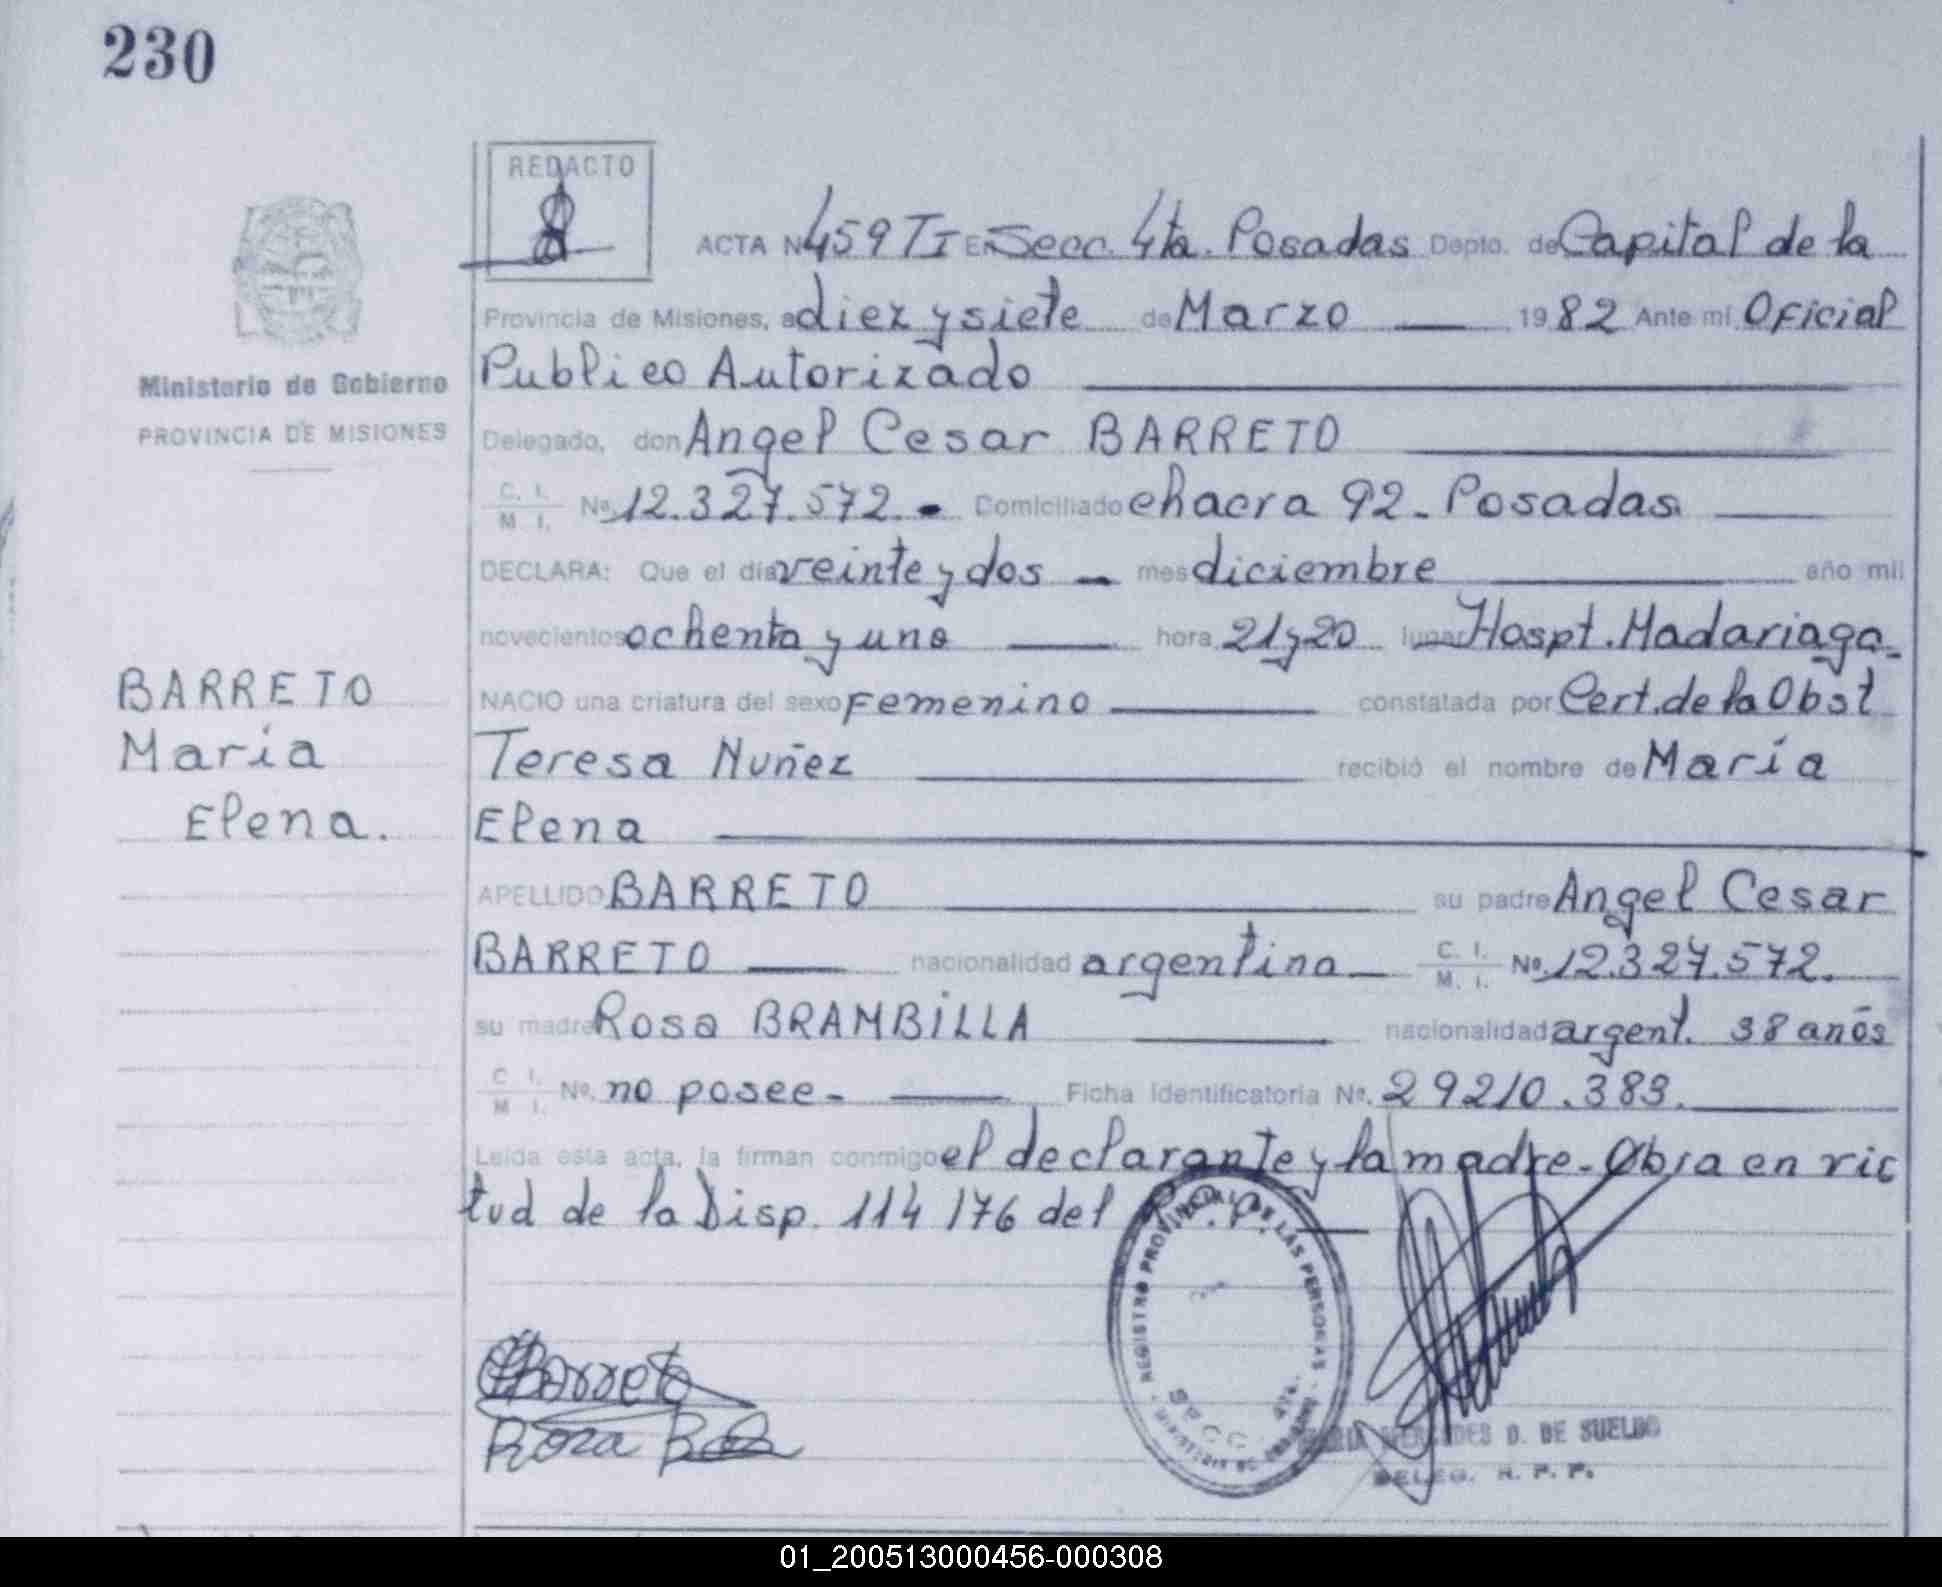 230
REDACTO
ACTA Nº 459 TI EN Secc. 4ta. Posadas Depto. de Capital de la
Provincia de Misiones, a diez y siete de Marzo 1982 Ante mí Oficial
Publico Autorizado
Ministerio de Gobierno
PROVINCIA DE MISIONES
Delegado, don Angel Cesar BARRETO
C. I. M. I. Nº 12.327.572.- Domiciliado chacra 92- Posadas
DECLARA: Que el día veinte y dos - mes diciembre año mil
novecientos ochenta y uno hora 21y20 lugar Hospt. Madariaga.
NACIO una criatura del sexo Femenino constatada por Cert. de la Obst
Teresa Nuñez recibió el nombre de María
Elena
BARRETO
María
Elena.
APELLIDO BARRETO su padre Angel Cesar
BARRETO nacionalidad argentina C. I. M. I. Nº 12.327.572.
su madre Rosa BRAMBiLLA nacionalidad argent. 38 años
C. I. M. I. Nº. no posee- Ficha Identificatoria Nº. 29210.383.
Leída esta acta, la firman conmigo el declarante y la madre- Obra en vic
tud de la Disp. 114 176 del R.P.P.
REGISTRO PROVINCIAL DE LAS PERSONAS
SECC. 4TA.
Barreto
Rosa
MERCEDES D. DE SUELDO
DELEG. R. P. P.
01_200513000456-000308